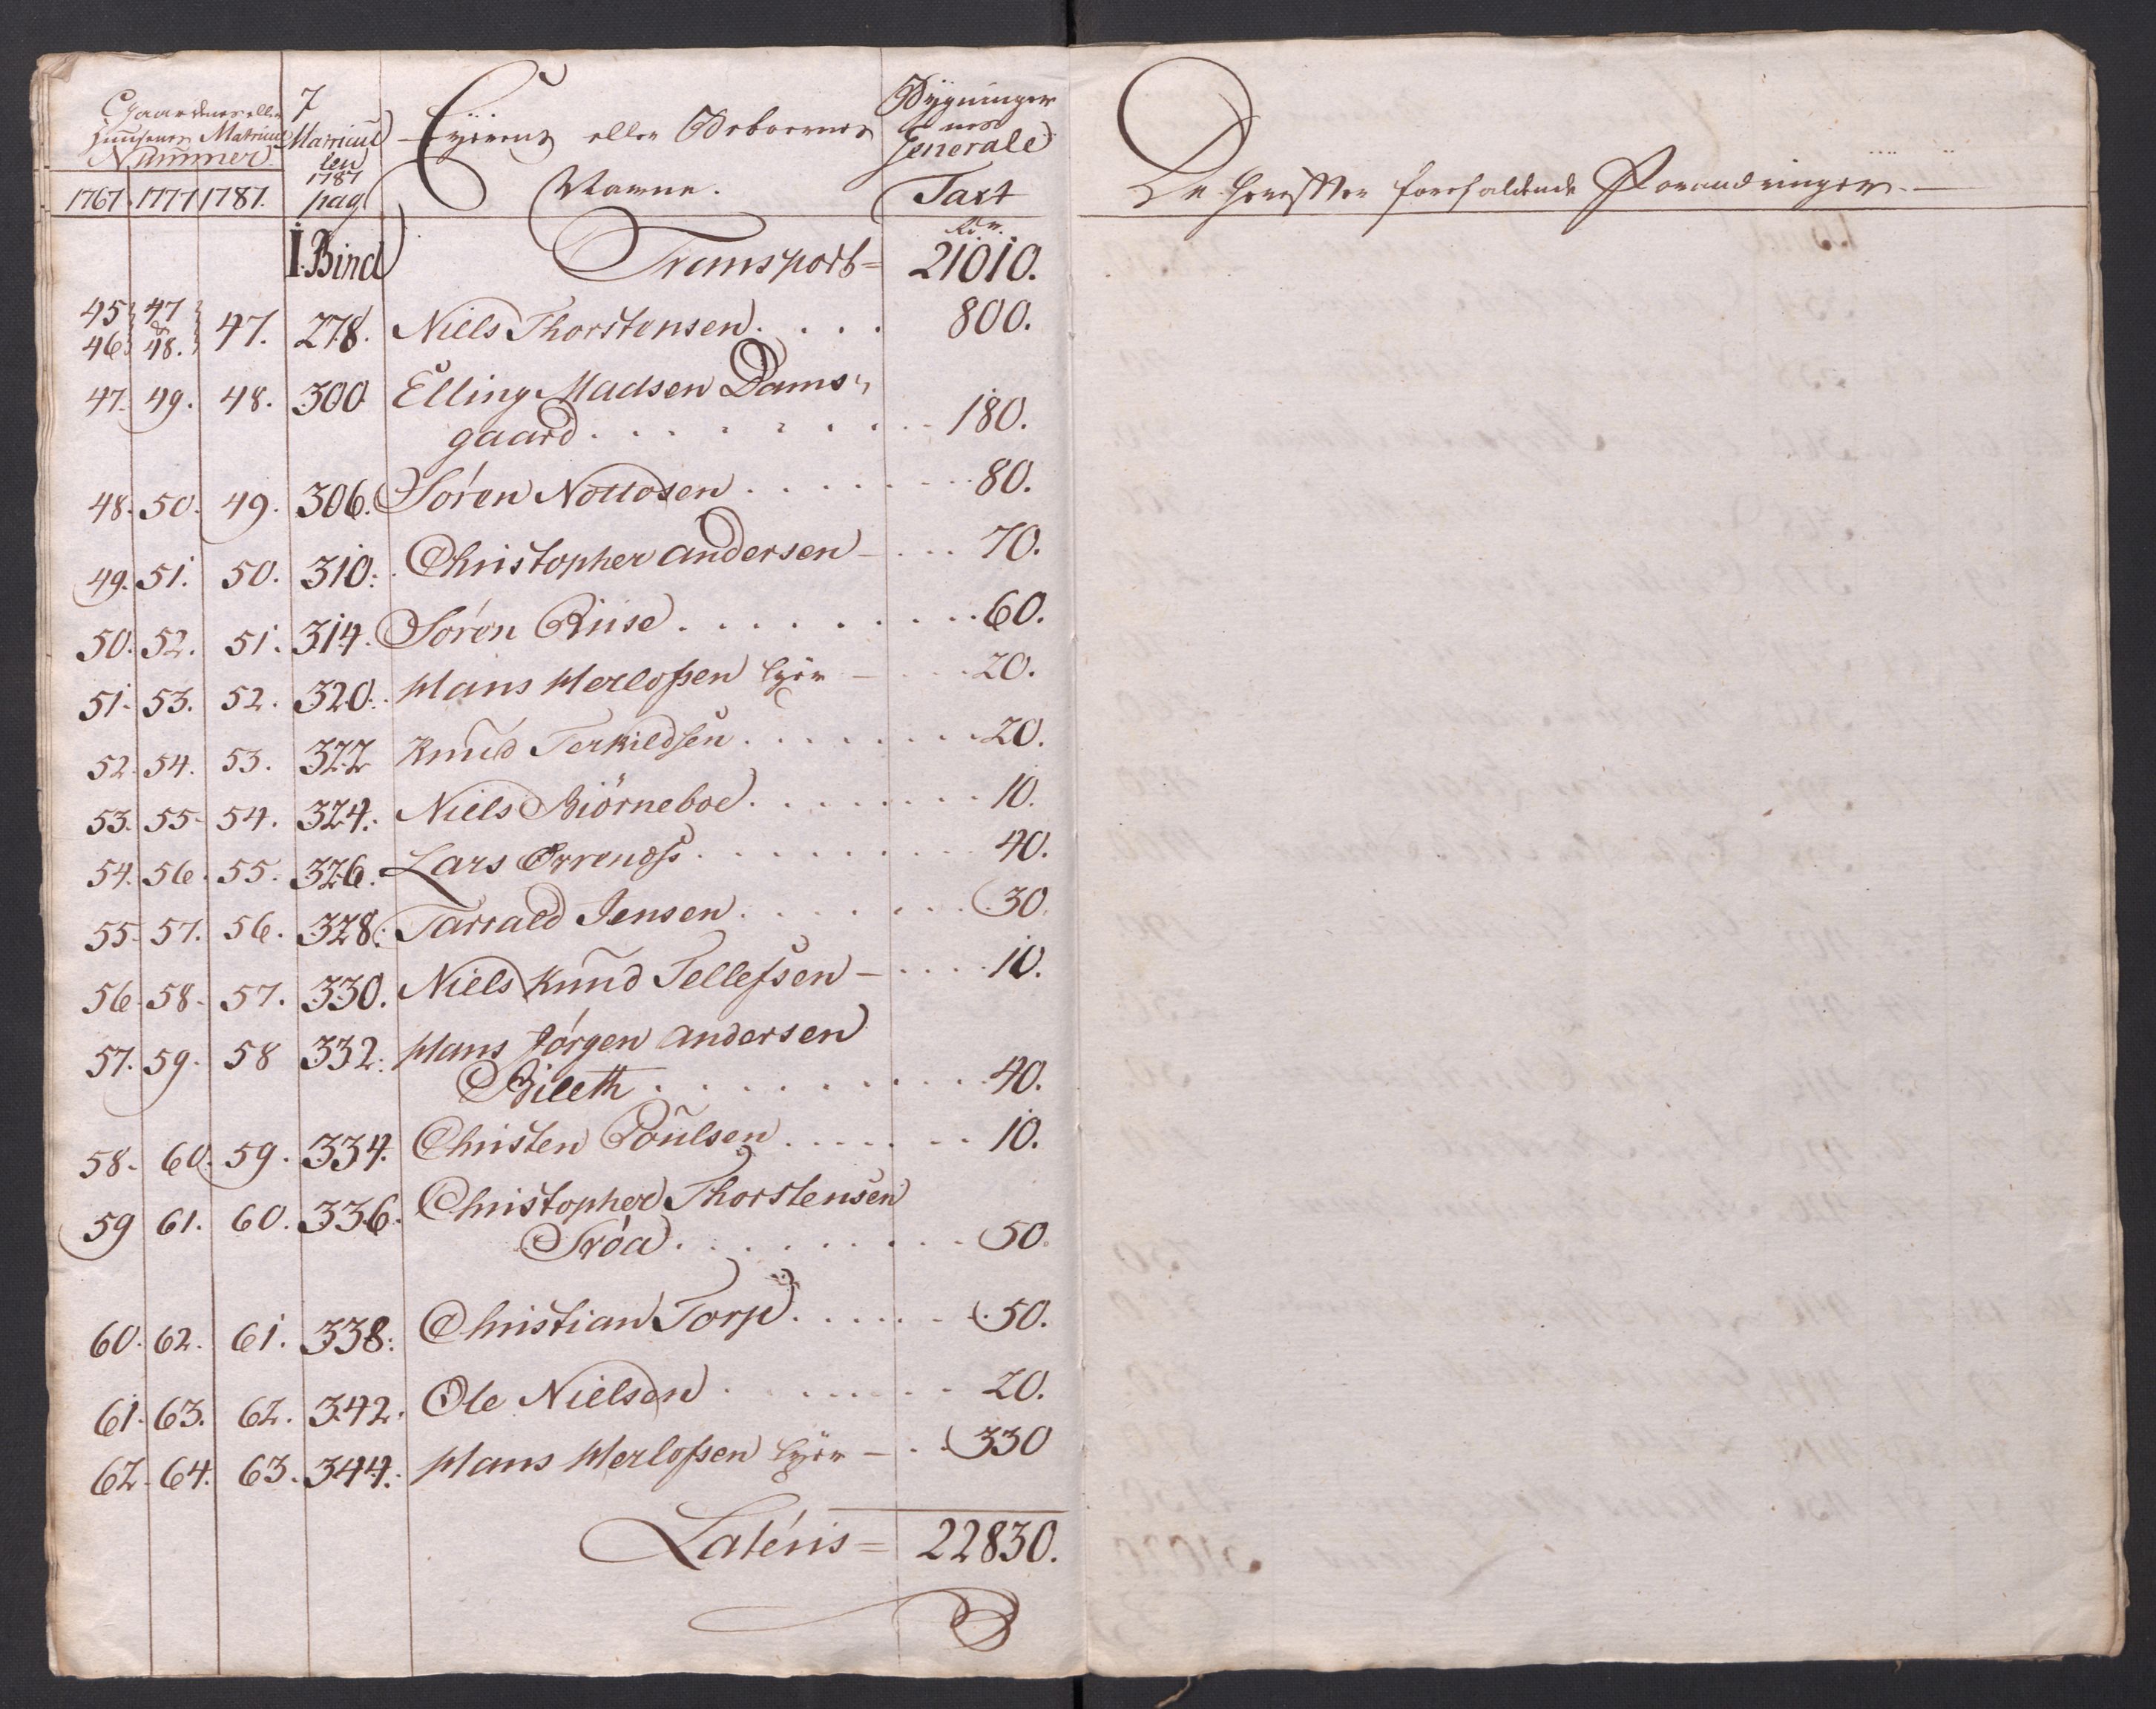 Gaardenes eller
Huusenes Matricul
Nummer
1767. 1777 1787.
7
Matricul
len
1787
pag
Eyerens eller Beboernes
Navne.
Bygninger
nes
Generale
Taxt
De herefter forefaldende Forandringer.
I. Bind Transport = 21010.
45 46 47 & 48. 47. 278. Niels Thorstensen. . . . 800.
47. 49. 48. 300 Elling Madsen Dams-
gaard . . . . . . . 180.
48. 50. 49. 306. Sören Nottosen . . . . . 80.
49. 51. 50. 310. Christopher Andersen - . . . 70.
50. 52. 51. 314. Sören Riise . . . . . . . 60.
51. 53. 52. 320. Hans Herlofsen Eyer - . . . 20.
52. 54. 53. 322 Knud Terkildsen . . . . . 20.
53. 55. 54. 324. Niels Biörneboe . . . . . 10.
54. 56. 55. 326. Lars . . . . . . 40.
55. 57. 56. 328. Tarrald Jensen . . . . . 30.
56. 58. 57. 330. Niels Knud Tellefsen - . . . . 10.
57. 59. 58 332. Hans Jörgen Andersen
Bileth . . . . . . . 40.
58. 60. 59. 334. Christen Poulsen . . . . . 10.
59 61. 60. 336. Christopher Thorstensen
Tröa . . . . . . . 50.
60. 62. 61. 338. Christian Torp . . . . . 50.
61. 63. 62. 342. Ole Nielsen . . . . . 20.
62. 64. 63. 344. Hans Herlofsen Eyer - . . 330
Lateris = 22830.